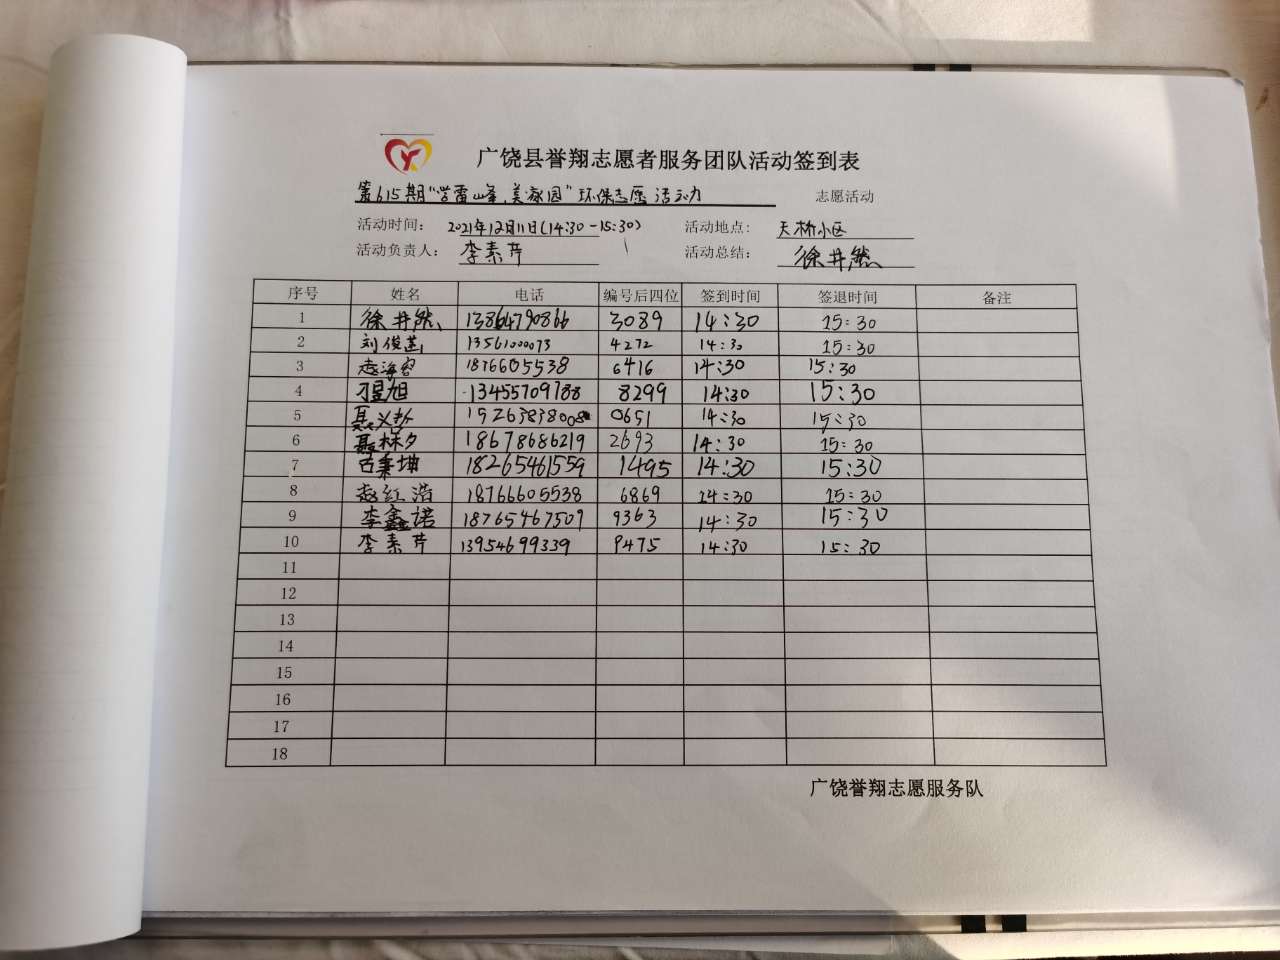 广饶县誉翔志愿者服务团队活动签到表
第615期“学雷峰,美家园”环保志愿活动 志愿活动
活动时间: 2021年12月11日(14:30-15:30) 活动地点: 天桥小区
活动负责人: 李素芹 活动总结: 徐井然
序号 姓名 电话 编号后四位 签到时间 签退时间 备注
1 徐井然 13864790866 3089 14:30 15:30
2 刘俊莲 13561000073 4272 14:30 15:30
3 赵海容 1876605538 6416 14:30 15:30
4 翟旭 13455709788 8299 14:30 15:30
5 聂义 15263838008 0651 14:30 15:30
6 聂林夕 18678686219 2693 14:30 15:30
7 古秉坤 18265461559 1495 14:30 15:30
8 赵红浩 18766605538 6869 14:30 15:30
9 李鑫诺 18765467509 9363 14:30 15:30
10 李素芹 13954699339 9475 14:30 15:30
11
12
13
14
15
16
17
18
广饶誉翔志愿服务队